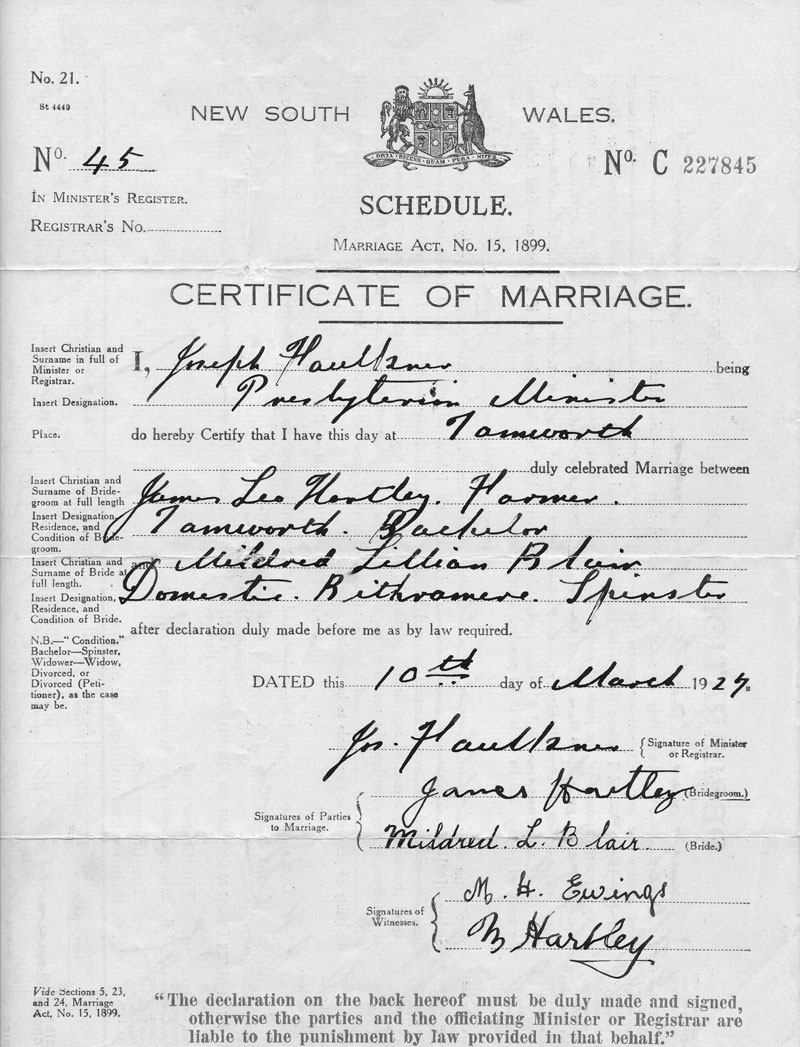 No. 21.
St 4449
NEW SOUTH WALES.
ORTA RECENS QUAM PURA NITES
No. 45
No. C 227845
IN MINISTER'S REGISTER.
REGISTRAR'S No.
SCHEDULE.
MARRIAGE ACT, No. 15, 1899.
CERTIFICATE OF MARRIAGE.
Insert Christian and
Surname in full of
Minister or
Registrar.
I, Joseph Faulkner being
Insert Designation.
Presbyterian Minister
Place.
do hereby Certify that I have this day at Tamworth
duly celebrated Marriage between
Insert Christian and
Surname of Bride-
groom at full length
James Leo Hartley. Farmer.
Insert Designation,
Residence, and
Condition of Bride-
groom.
Tamworth. Bachelor
Insert Christian and
Surname of Bride at
full length.
and Mildred Lillian Blair
Insert Designation,
Residence, and
Condition of Bride.
Domestic. Bithramere. Spinster
after declaration duly made before me as by law required.
N.B.—"Condition."
Bachelor—Spinster,
Widower—Widow,
Divorced, or
Divorced (Peti-
tioner), as the case
may be.
DATED this 10th day of March 1927.
Jos. Faulkner
Signature of Minister
or Registrar.
Signatures of Parties
to Marriage.
James Hartley (Bridegroom.)
Mildred. L. Blair. (Bride.)
Signatures of
Witnesses.
M. H. Ewings
M Hartley
Vide Sections 5, 23,
and 24, Marriage
Act, No. 15, 1899.
"The declaration on the back hereof must be duly made and signed,
otherwise the parties and the officiating Minister or Registrar are
liable to the punishment by law provided in that behalf."